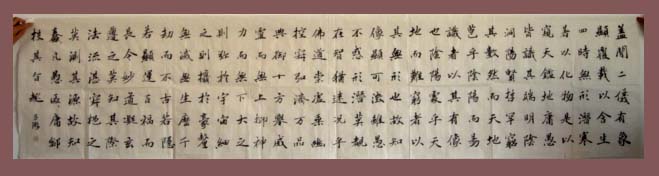 蓋聞二儀有象
顯覆載以含生
四時無形潛寒
暑以化物是以
窺天鑑地庸愚
皆識其端明陰
洞陽賢哲罕窮
其數然而天地
苞乎陰陽而易
識者以其有像
也陰陽處乎天
地而難窮者以
其無形也故知
像顯可徵雖愚
不惑形潛莫覩
在智猶迷況乎
佛道崇虛乘幽
控寂弘濟萬品
典御十方舉威
靈而無上抑神
力而無下大之
則彌於宇宙細
之則攝於毫釐
無滅無生歷千
劫而不古若隱
若顯運百福而
長今妙道凝玄
遵之莫知其際
法流湛寂挹之
莫測其源故知
蠢々凡愚區々庸鄙
投其旨趣